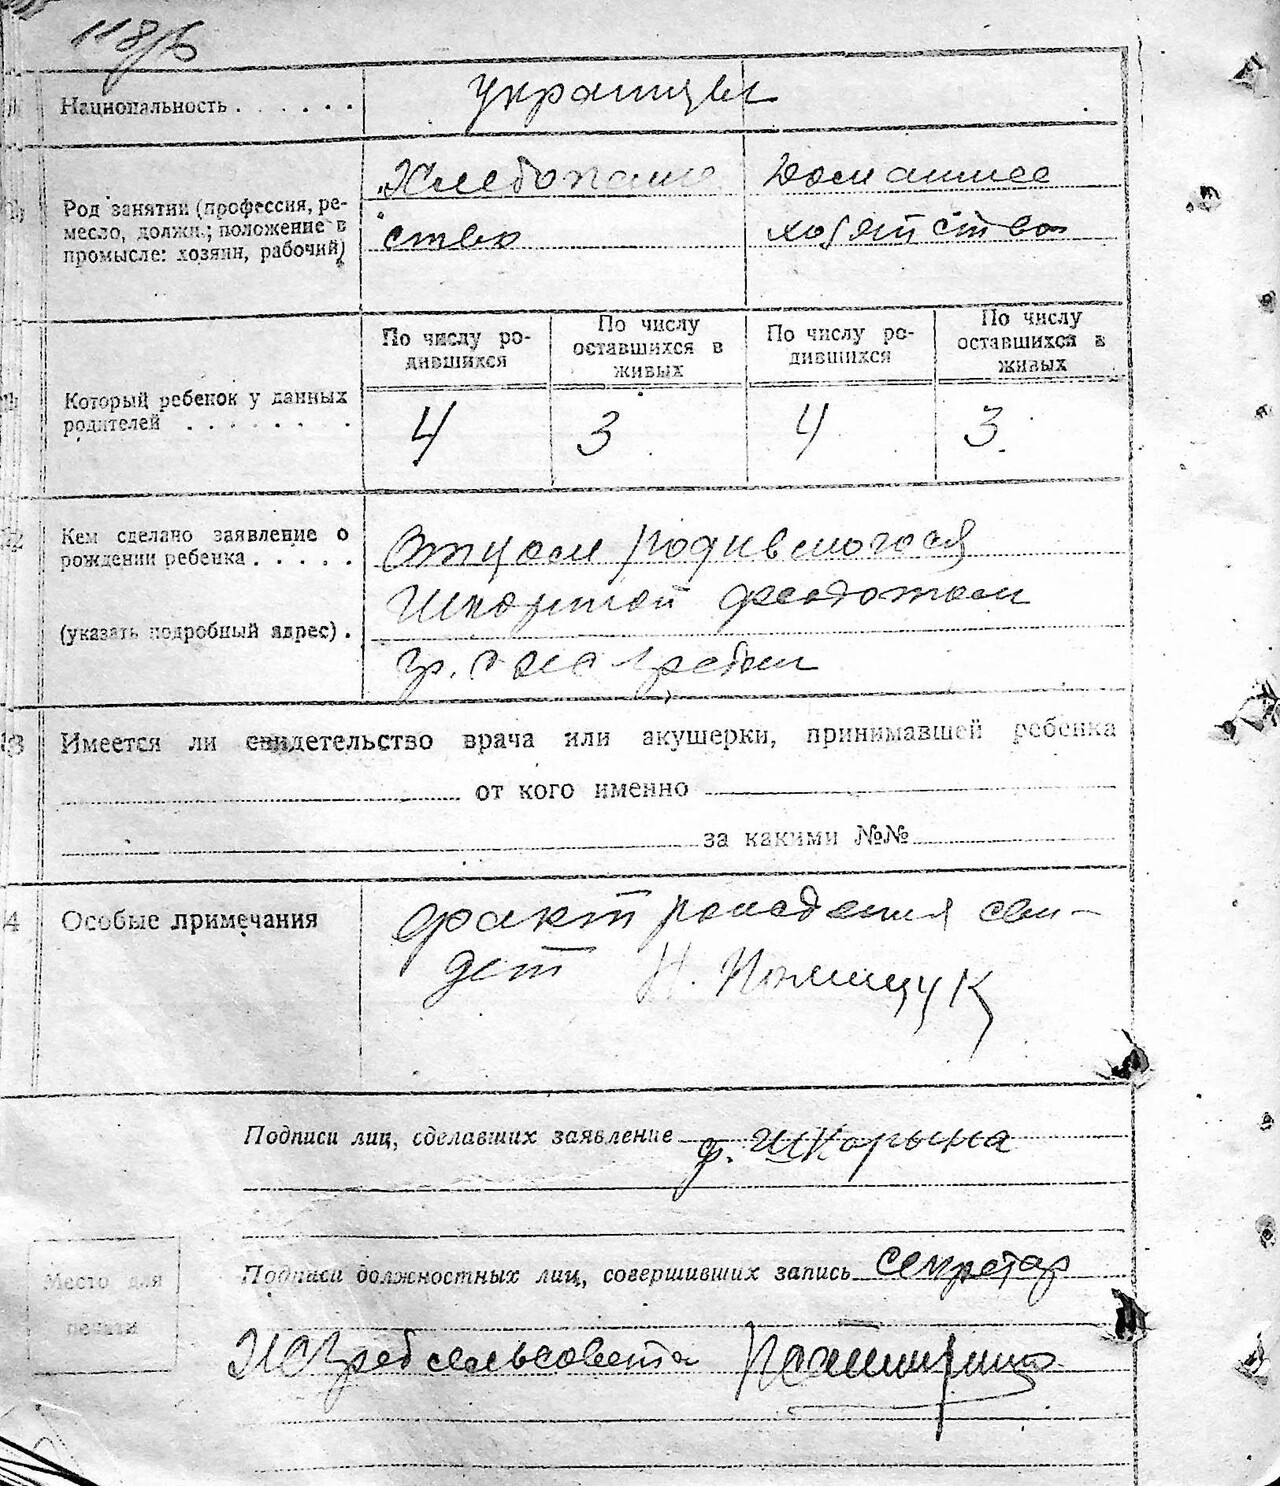 118/б
Национальность . . . . . .
украинцы
Род занятий (профессия, ре-
месло, должн.; положение в
промысле: хозяин, рабочий)
Хлебопаше
ство
Домашнее
хозяйство
Который ребенок у данных
родителей . . . . . . .
По числу ро-
дившихся
По числу
оставшихся в
живых
По числу ро-
дившихся
По числу
оставшихся в
живых
4 3 4 3
Кем сделано заявление о
рождении ребенка . . . . .
(указать подробный адрес) .
Отцом родившогося
Феодотом
гр. с
13 Имеется ли свидетельство врача или акушерки, принимавшей ребенка
от кого именно
за какими №№
4 Особые примечания
факт рождения сви-
дет Н. Полищук
Подписи лиц, сделавших заявление ф. Шкорына
Место для
печати
Подписи должностных лиц, совершивших запись секретар
сельсовета